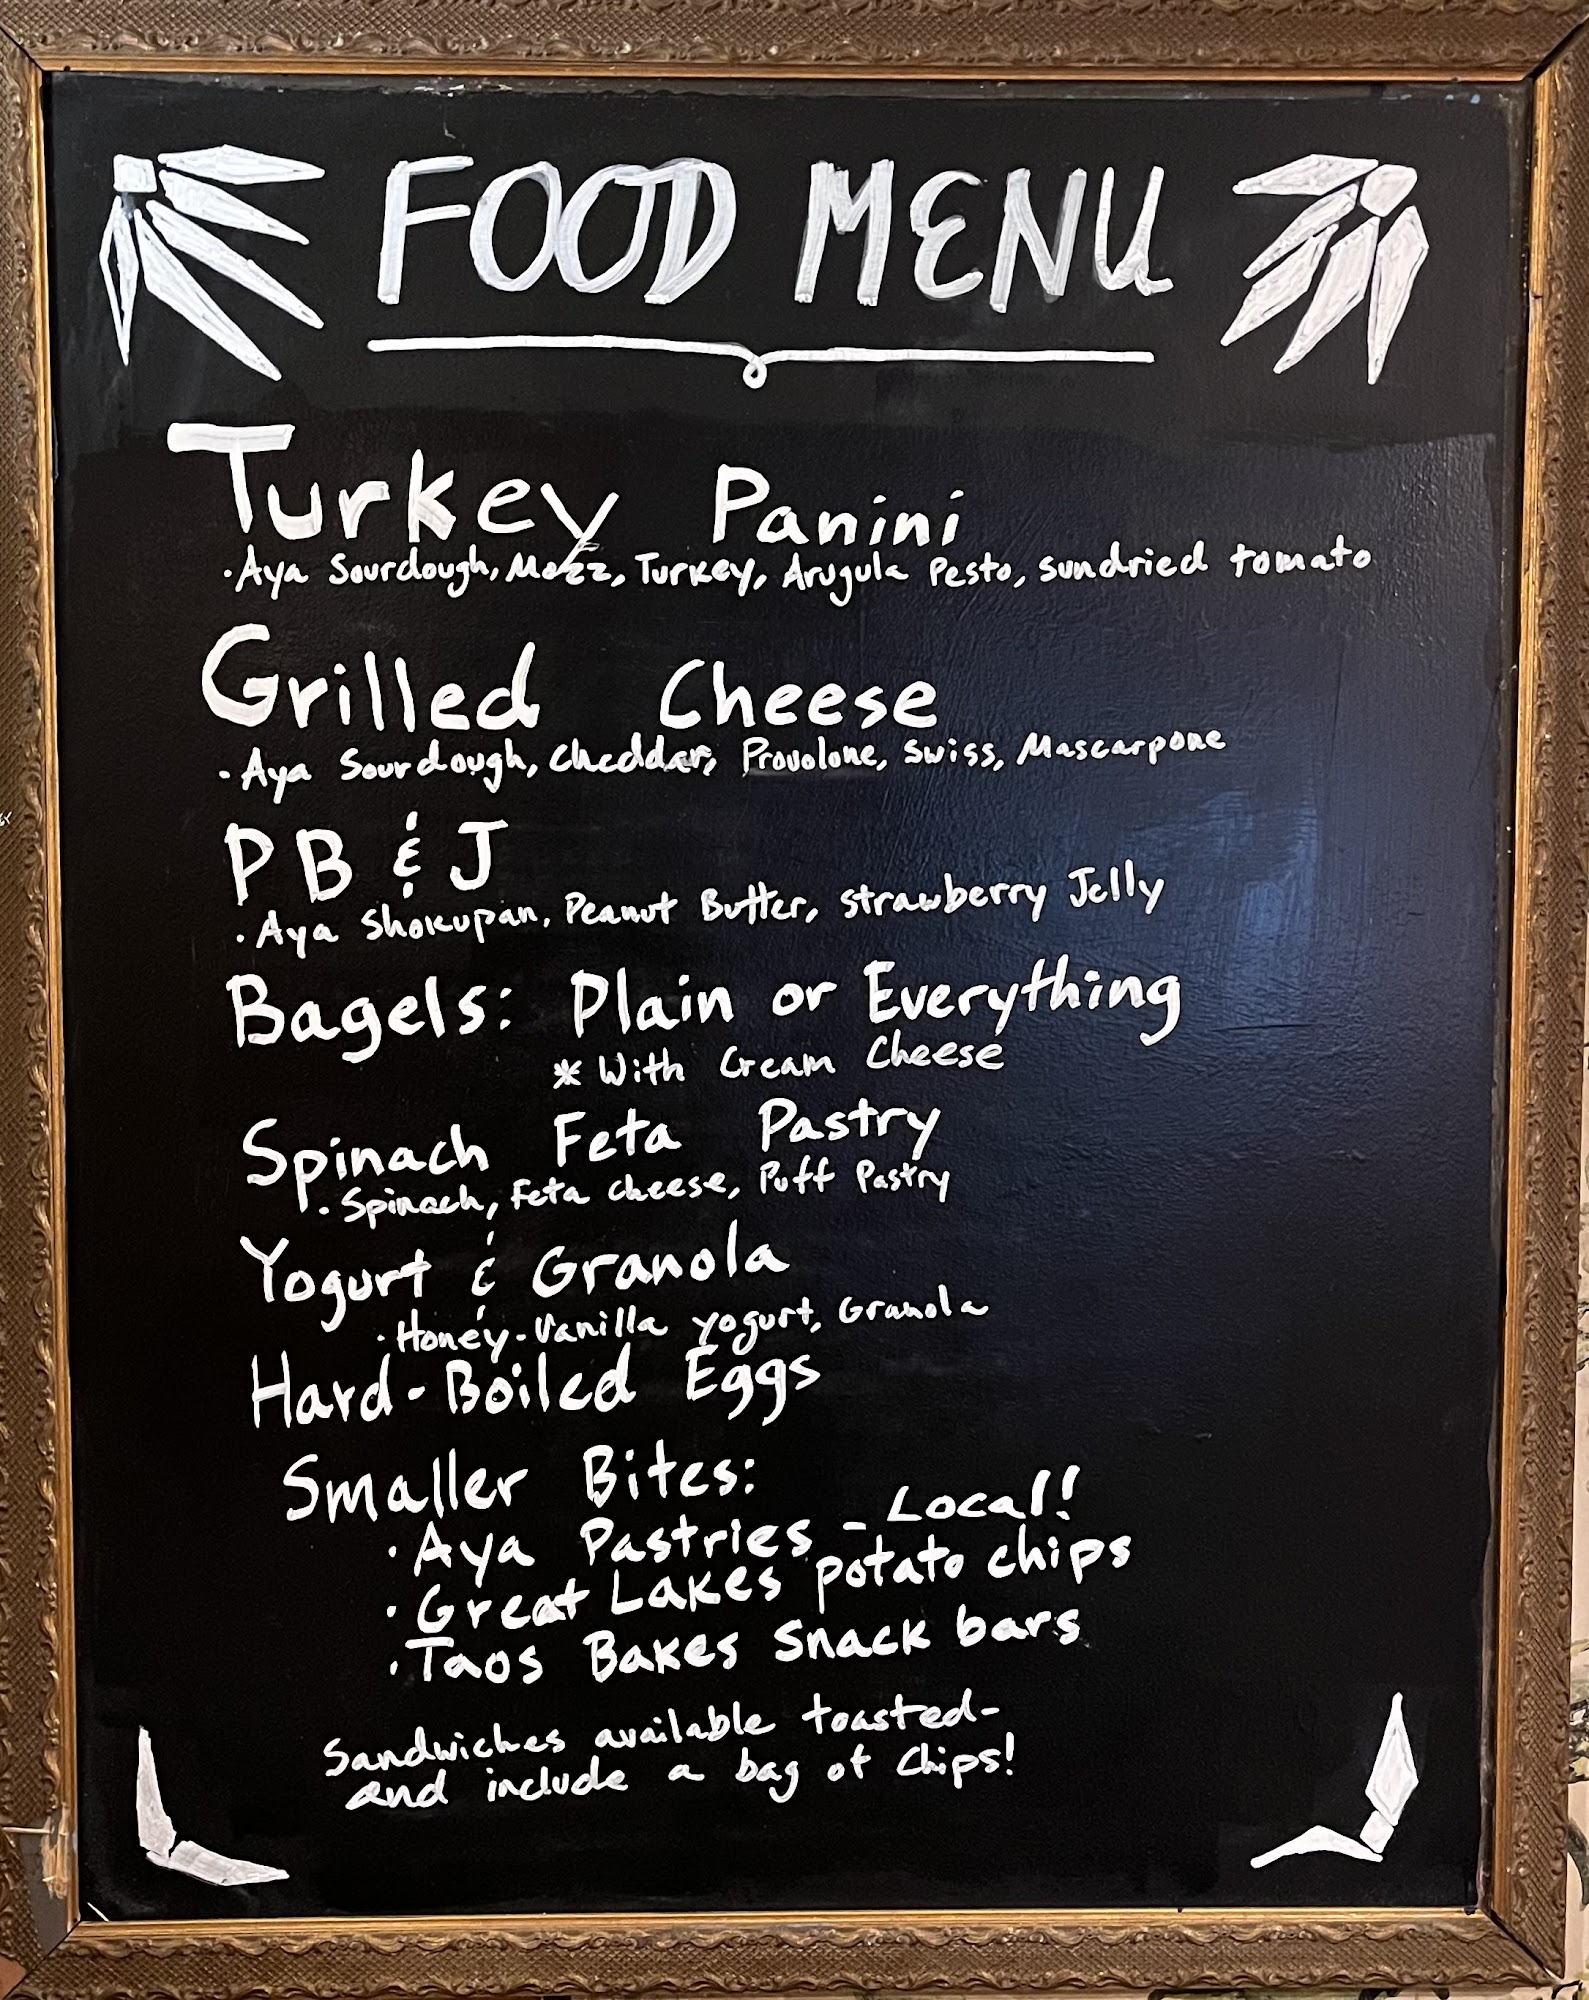 FOOD MENU
Turkey Panini
• Aya Sourdough, Mozz, Turkey, Arugula Pesto, sundried tomato
Grilled Cheese
• Aya Sourdough, Cheddar, Provolone, Swiss, Mascarpone
PB & J
• Aya Shokupan, Peanut Butter, Strawberry Jelly
Bagels: Plain or Everything
* With Cream Cheese
Spinach Feta Pastry
• Spinach, Feta cheese, Puff Pastry
Yogurt & Granola
• Honey-Vanilla yogurt, Granola
Hard-Boiled Eggs
Smaller Bites:
• Aya Pastries - Local!
• Great Lakes potato chips
• Taos Bakes Snack bars
Sandwiches available toasted-
and include a bag of chips!